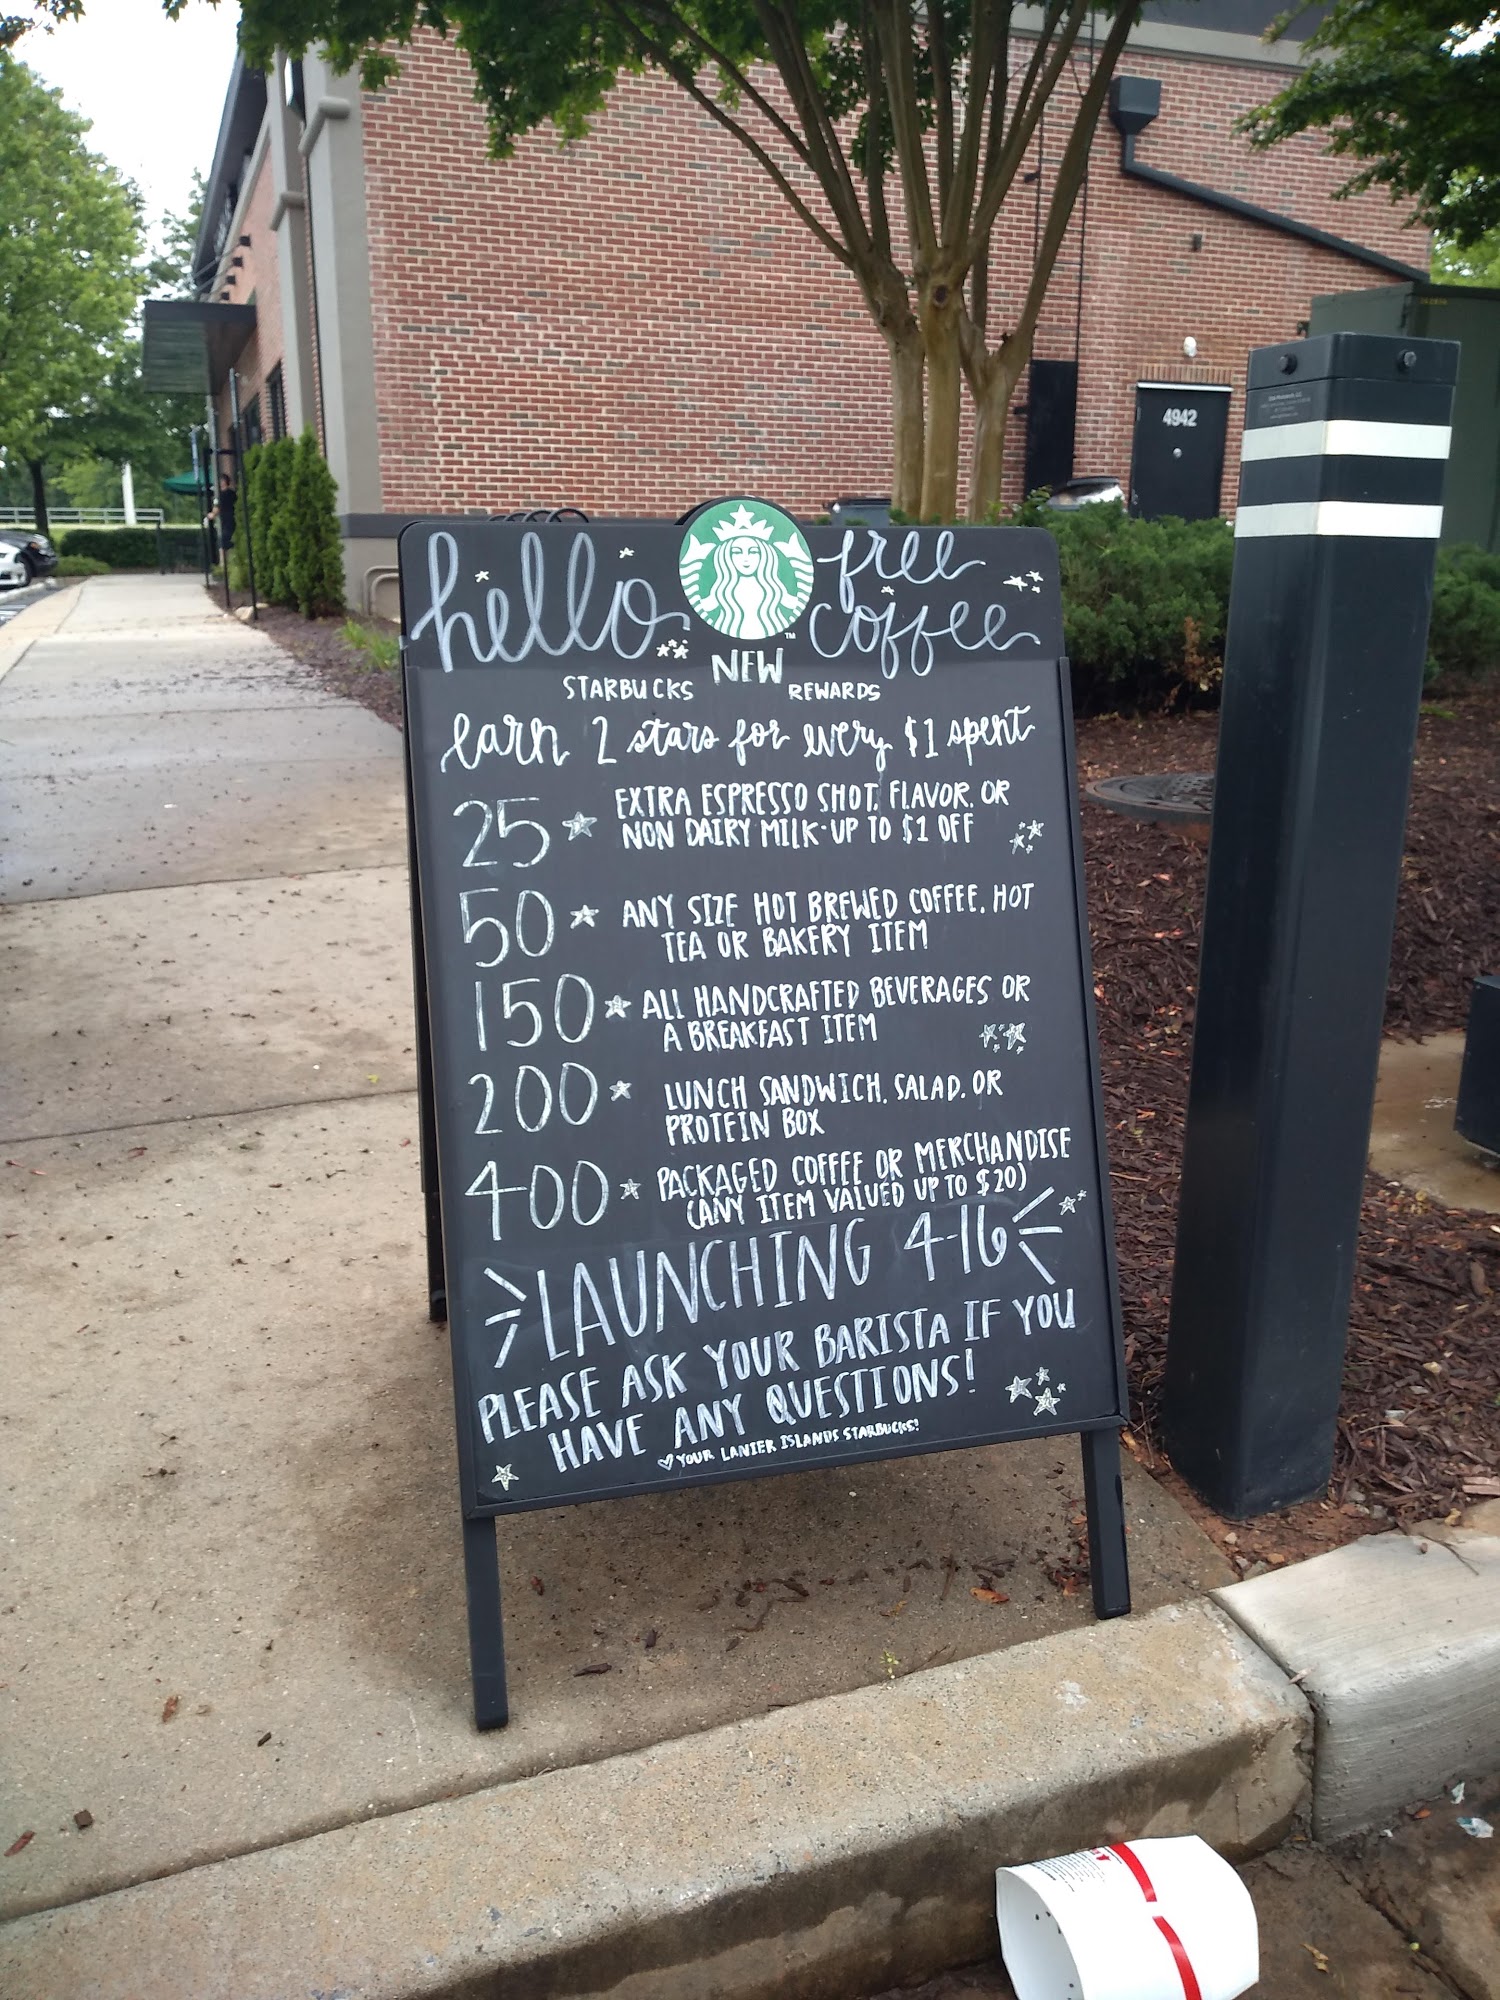 hello free
coffee
NEW
STARBUCKS REWARDS
earn 2 stars for every $1 spent
25 EXTRA ESPRESSO SHOT, FLAVOR, OR
NON DAIRY MILK-UP TO $1 OFF
50 ANY SIZE HOT BREWED COFFEE, HOT
TEA OR BAKERY ITEM
150 ALL HANDCRAFTED BEVERAGES OR
A BREAKFAST ITEM
200 LUNCH SANDWICH, SALAD, OR
PROTEIN BOX
400 PACKAGED COFFEE OR MERCHANDISE
(ANY ITEM VALUED UP TO $20)
LAUNCHING 4-16
PLEASE ASK YOUR BARISTA IF YOU
HAVE ANY QUESTIONS!
YOUR LANIER ISLANDS STARBUCKS!
TM
4942